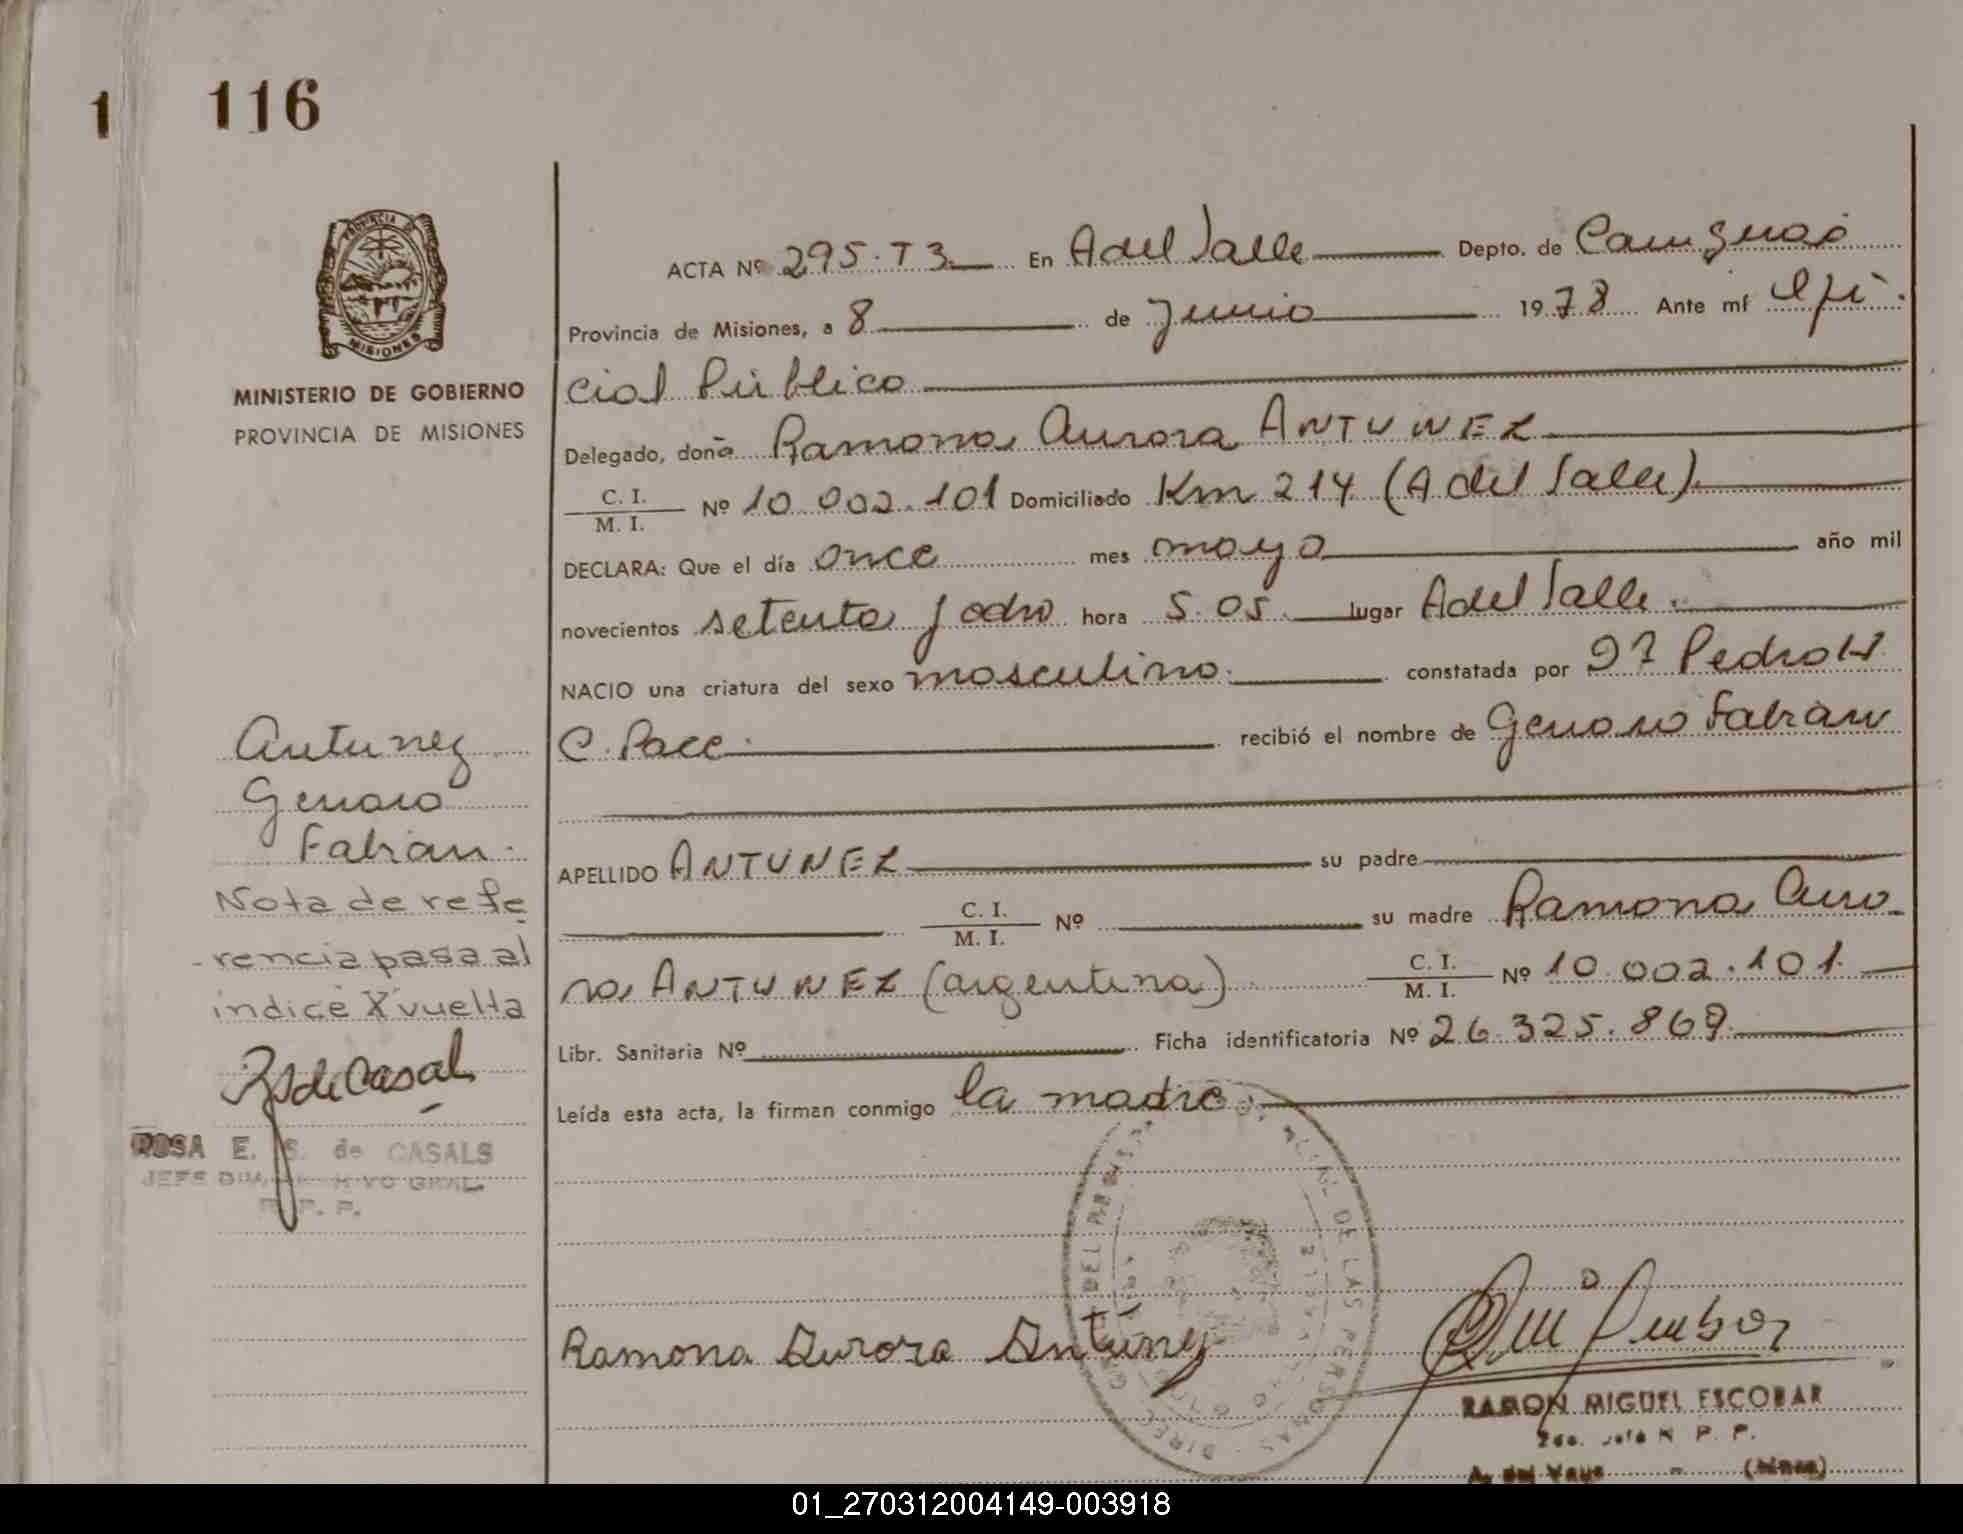 1 116
PROVINCIA DE
MISIONES
MINISTERIO DE GOBIERNO
PROVINCIA DE MISIONES
ACTA Nº 295. T 3. En A del Valle Depto. de Cainguás
Provincia de Misiones, a 8 de Junio 1978 Ante mí Ofi
cial Público
Delegado, doña Ramona Aurora ANTUNEZ
C. I.
M. I. Nº 10.002.101 Domiciliado Km 214 (A del Valle).
DECLARA: Que el día once mes mayo año mil
novecientos setenta y ocho hora 5.05. lugar A del Valle.
NACIO una criatura del sexo masculino. constatada por Pedro
C. Pace. recibió el nombre de Genaro Fabian
Antunez
Genaro
Fabian.
APELLIDO ANTUNEZ su padre
C. I.
M. I. Nº su madre Ramona Auro
ra ANTUNEZ (argentina) C. I.
M. I. Nº 10.002.101.
Libr. Sanitaria Nº Ficha identificatoria Nº 26.325.869.
Leída esta acta, la firman conmigo la madre.
Nota de refe
rencia pasa al
indice X vuelta
RSdeCasal
ROSA E. S. de CASALS
R. P. P.
DE LAS PERSONAS
Ramona Aurora Antúnez
RAMON MIGUEL ESCOBAR
2do. Jefe R. P. P.
A. del Valle (Mnes)
01_270312004149-003918